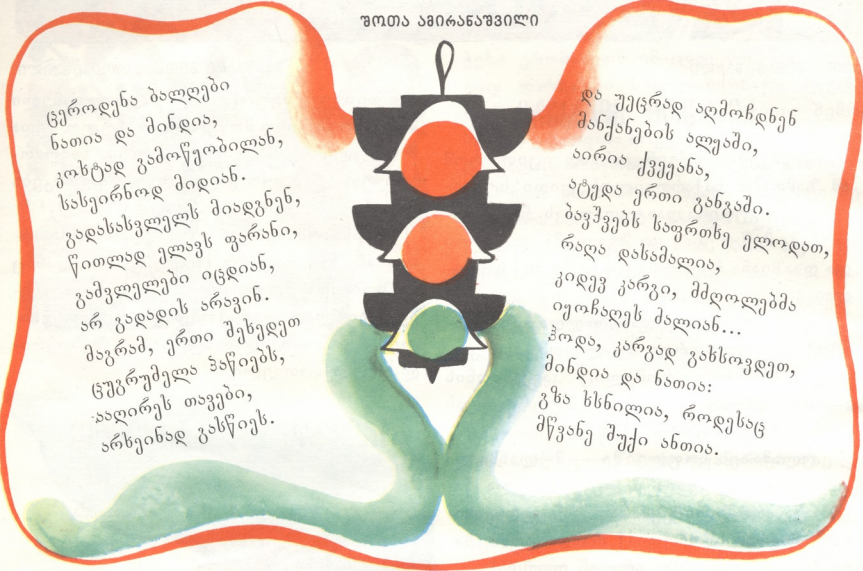 შოთა ამირანაშვილი
ცეროდენა ბალღები
ნათია და მინდია,
კოხტად გამოწყობილან,
სასეირნოდ მიდიან.
გადასასვლელს მიადგნენ,
წითლად ელავს ფარანი,
გამვლელები იცდიან,
არ გადადის არავინ.
მაგრამ, ერთი შეხედეთ
ცუგრუმელა ჭაწიებს,
ააღირეს თავები,
არხეინად გასწიეს.
და უეცრად აღმოჩდნენ
მანქანების ალყაში,
აირია ქვეყანა,
ატყდა ერთი განგაში.
ბავშვებს საფრთხე ელოდათ,
რაღა დასამალია,
კიდევ კარგი, მძღოლებმა
იყოჩაღეს ძალიან...
ჰოდა, კარგად გახსოვდეთ,
მინდია და ნათია:
გზა ხსნილია, როდესაც
მწვანე შუქი ანთია.